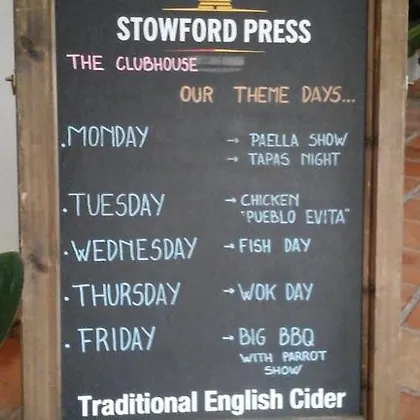 STOWFORD PRESS
THE CLUBHOUSE
OUR THEME DAYS...
.MONDAY → PAELLA SHOW
→ TAPAS NIGHT
.TUESDAY → CHICKEN
"PUEBLO EVITA"
.WEDNESDAY → FISH DAY
.THURSDAY → WOK DAY
.FRIDAY → BIG BBQ
WITH PARROT
SHOW
Traditional English Cider